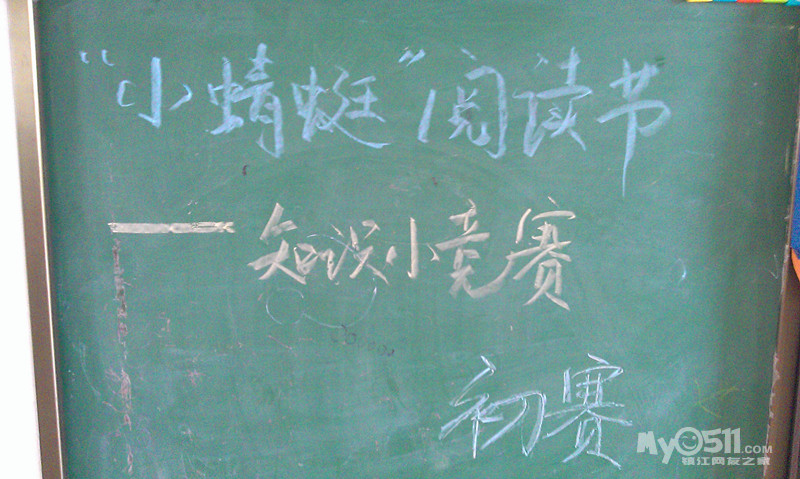 “小蜻蜓”阅读节
——知识小竞赛
初赛
My0511.COM
镇江网友之家